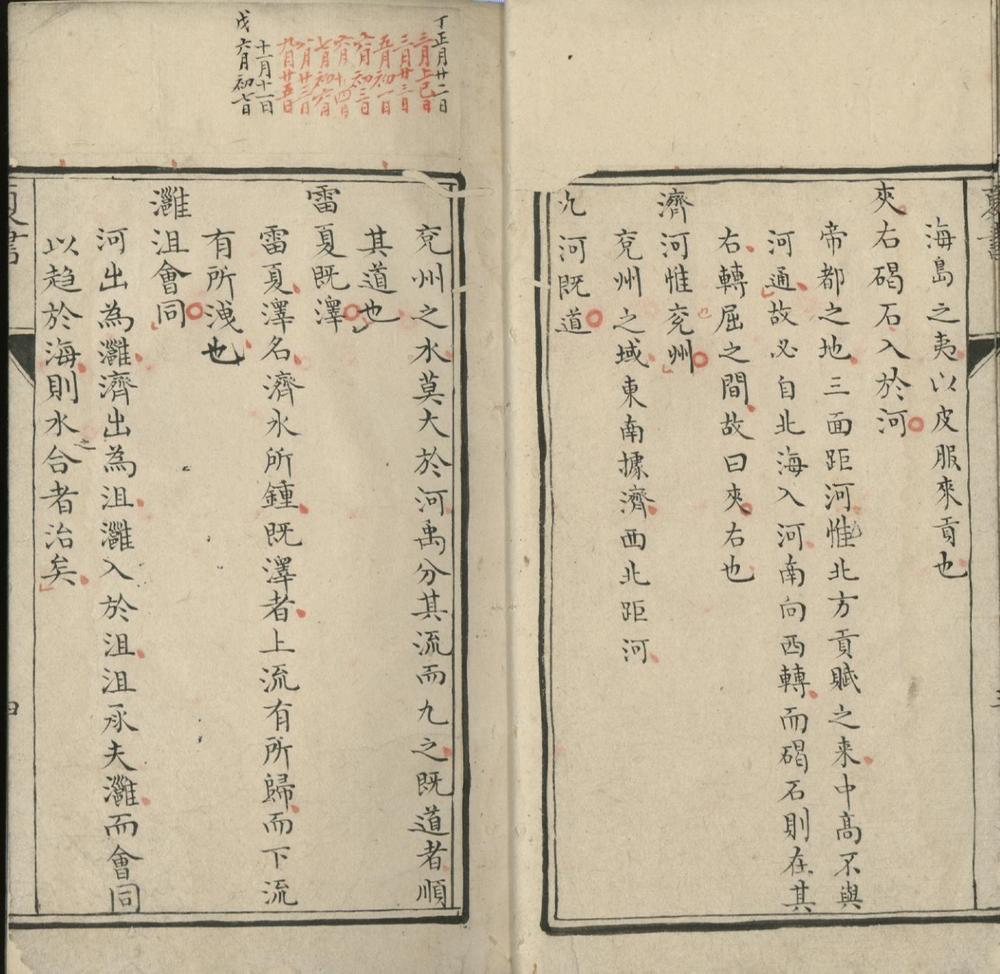 海島之夷以皮服來貢也
夾右碣石入於河
帝都之地三面距河惟北方貢賦之来中高不與
河通故必自北海入河南向西轉而碣石則在其
右轉屈之間故曰夾右也
濟河惟兖州
兖州之域東南據濟西北距河
九河既道
丁正月廿二日
三月上巳日
三月廿三日
五月初一日
六月初三日
六月十四日
七月初六日
八月廿三日
九月廿五日
十一月十一日
戊六月初七日
兖州之水莫大於河禹分其流而九之既道者順
其道也
雷夏既澤
雷夏澤名濟水所鍾既澤者上流有所歸而下流
有所洩也
灉沮會同
河出為灉濟出為沮灉入於沮沮承夫灉而會同
以趋於海則水之合者治矣
四